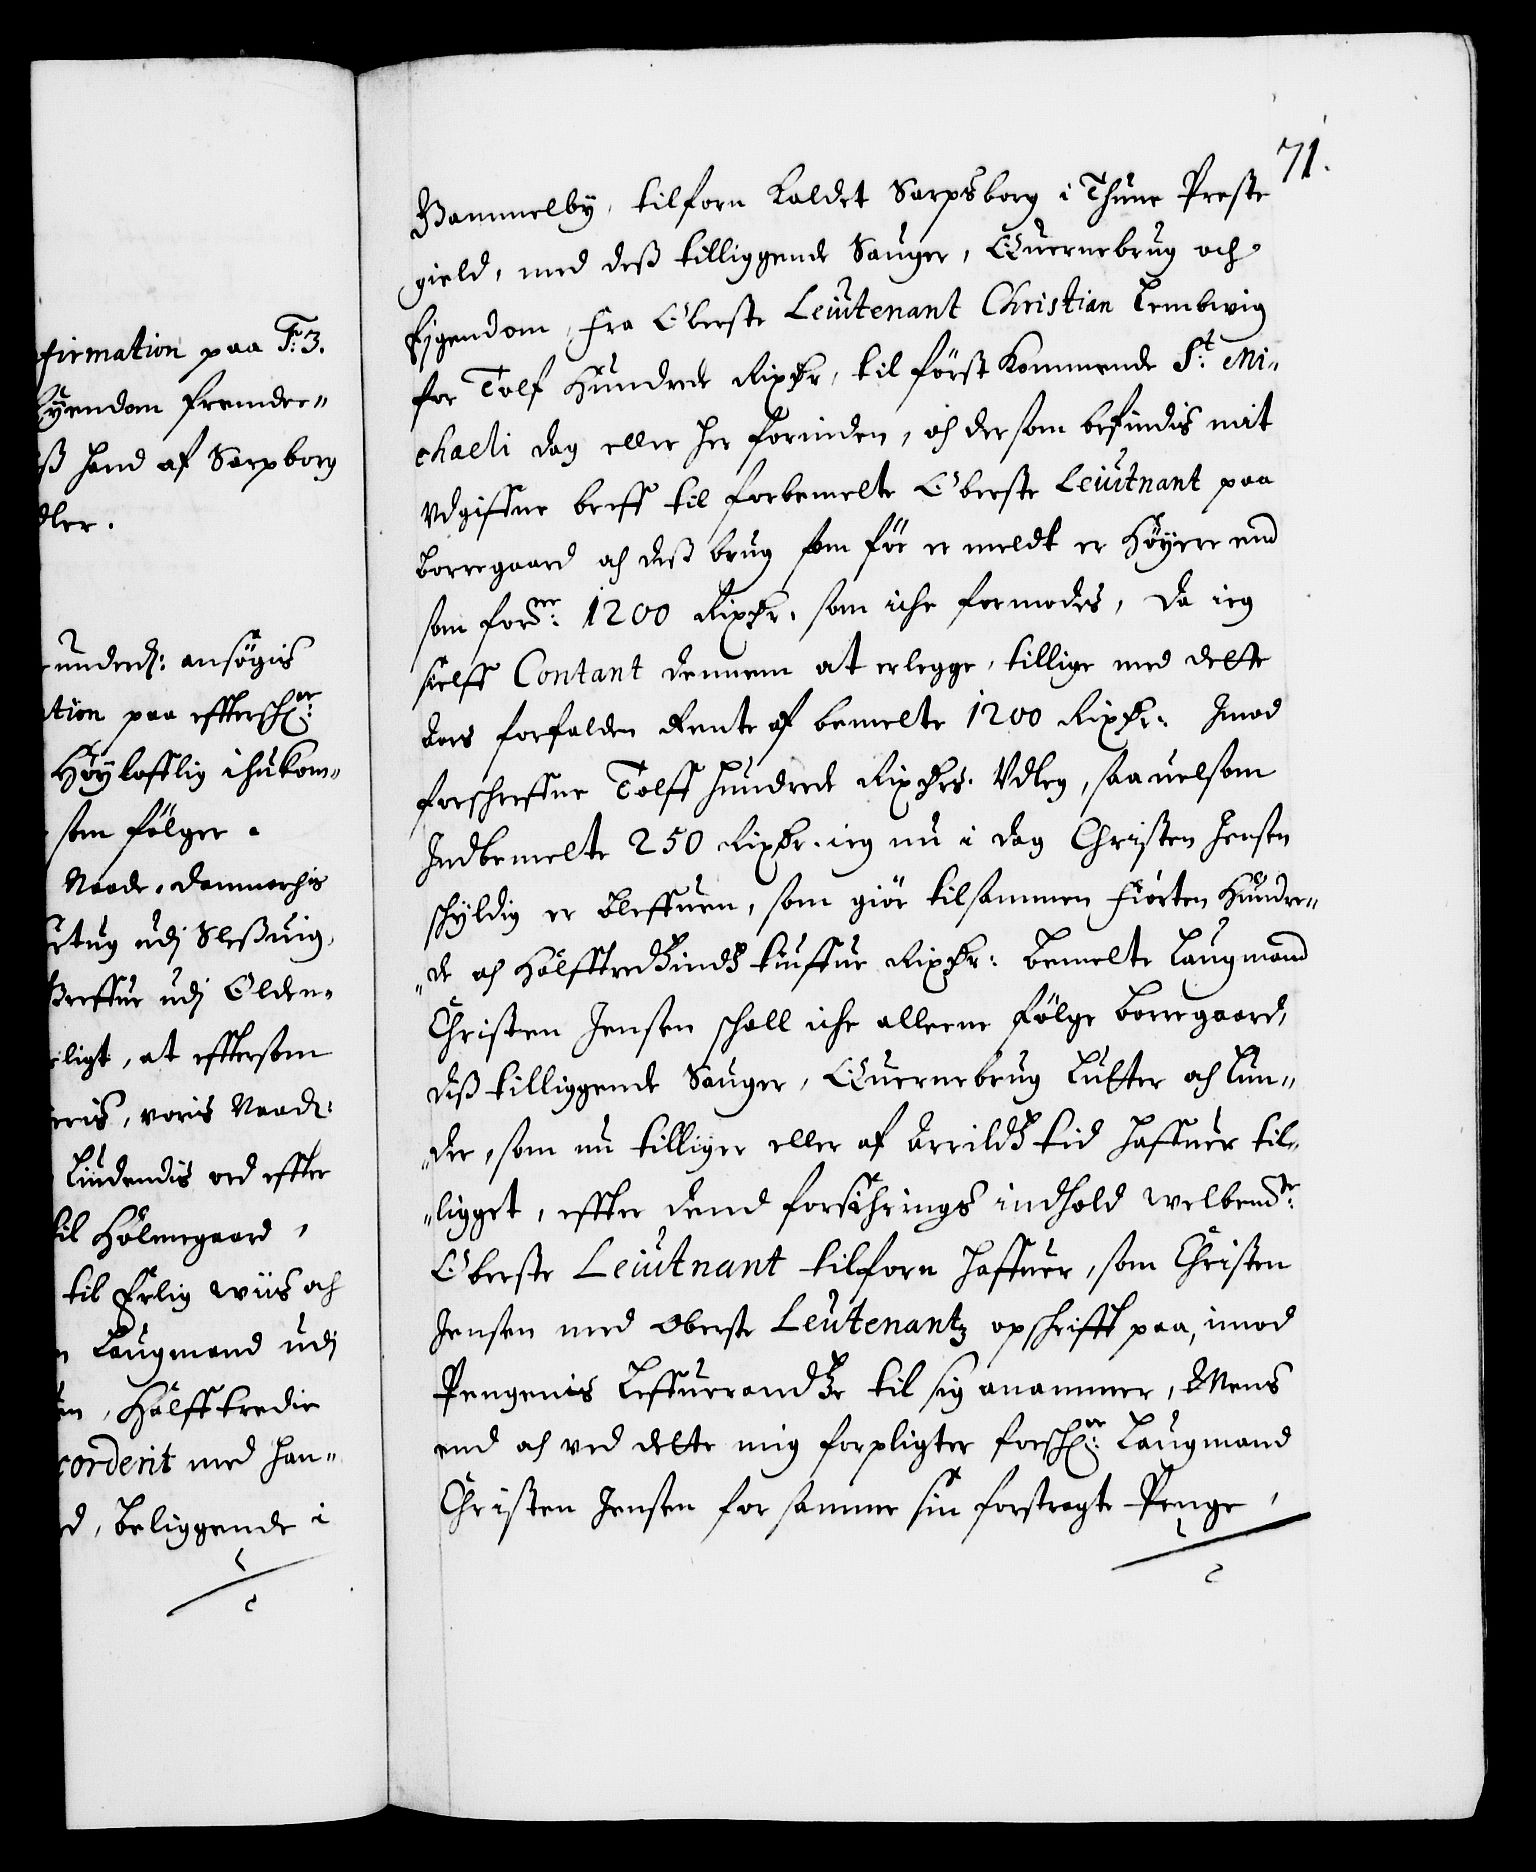 firmation paa Fr: 3.
Eyendom fremder-
ß hand af Sarpborg
dler.
underd: ansøgis
tion paa effterschne:
Høyloflig ihukom-
som følger.
Naade, Danmarchis
ertug udj Sleßvig,
Greffue udj Olden-
ligt, at efftersom
eris, voris Naad:
Liudendis ord effter
til Hølnegaard,
til Erlig wiis och
Laugmand udj
en, Halfftredie
corderit med han-
d, beliggende i
71.
Gammelby, tilforn kaldet Sarpsborg i Thune Preste
gield, med deß tilliggende Sauger, Quernebrug och
Eigendom, fra Oberste Leiutenant Christian Lembwig
for Tolf Hundrede Rixdr, til først kommende St. Mi-
chaeli dag eller her forinden, och dersom befindis mit
udgiffne breff til forbemelte Oberste Leiutnant paa
Borregaard och deß brug som før er meldt er Høyere end
som forne: 1200 Rixdr. som iche formodes, da ieg
sielff Contant dennem at erlegge, tillige med dette
Aars forfalden Rente af bemelte 1200 Rixdr. Imod
forschreffne Tolff hundrede Rixdrs. Udleg, saa velsom
Indbemelte 250 Rixdr. ieg nu i dag Christen Jensen
schyldig er bleffuen, som giør tilsammen fiorten Hundre-
de och Halfftredsindstiuffue Rixdr: bemelte Laugmand
Christen Jensen schall iche alleene følge Borregaard,
deß tilliggende Sauger, Quernebrug Lutter och Lun-
der, som nu tilliger eller af Arrilds tid haffuer til-
ligget, effter dend forsichrings indhold welbemte:
Oberste Leiutnant tilforn haffuer, som Christen
Jensen med Oberste Leutenantz opschrifft paa, imod
Pengenis Leffuerandse til sig anammer, Mens
end och ved dette mig forpligter forschne: Laugmand
Christen Jensen for samme sin forstragte Penge,